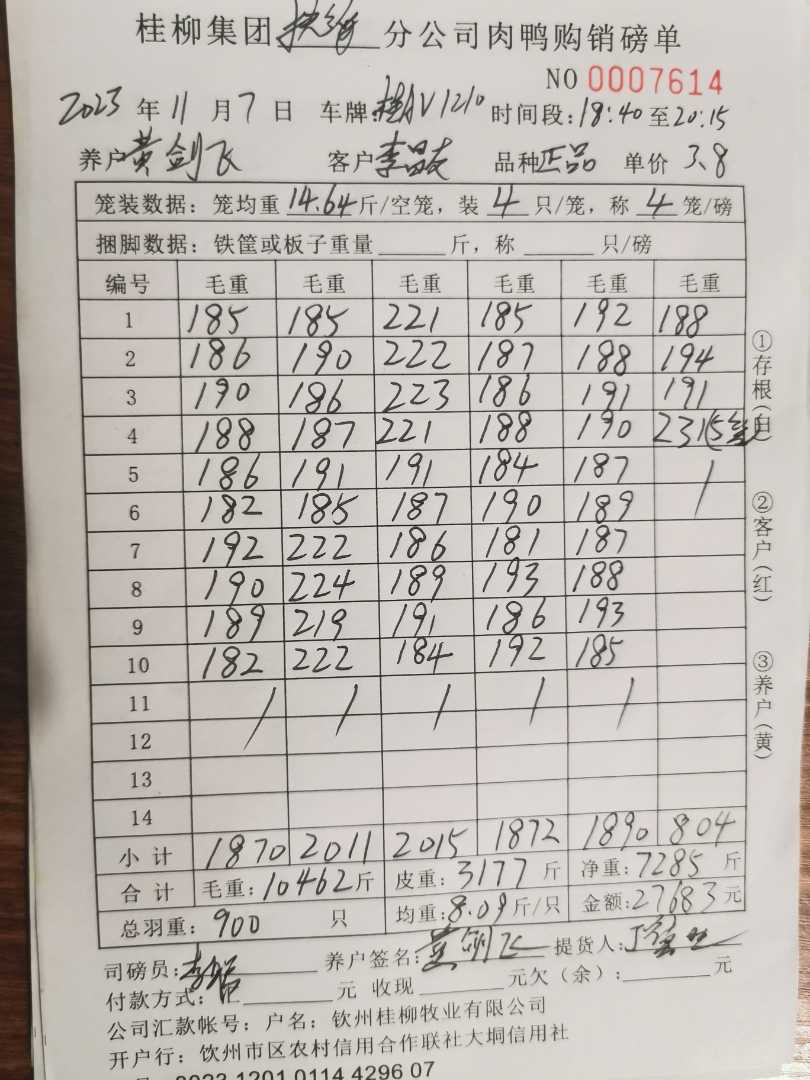 桂柳集团扶绥分公司肉鸭购销磅单
NO 0007614
2023年11月7日 车牌:桂AV1210 时间段:18:40至20:15
养户黄剑飞 客户李昌友 品种正品 单价3.8
笼装数据:笼均重14.64斤/空笼,装4只/笼,称4笼/磅
捆脚数据:铁筐或板子重量______斤,称______只/磅
编号 毛重 毛重 毛重 毛重 毛重 毛重
1 185 185 221 185 192 188
2 186 190 222 187 188 194
3 190 186 223 186 191 191
4 188 187 221 188 190 231(5笼)
5 186 191 191 184 187 /
6 182 185 187 190 189
7 192 222 186 181 187
8 190 224 189 193 188
9 189 219 191 186 193
10 182 222 184 192 185
11 / / / / /
12
13
14
小计 1870 2011 2015 1872 1890 804
合计 毛重:10462斤 皮重:3177斤 净重:7285斤
总羽重:900只 均重:8.09斤/只 金额:27683元
司磅员: 养户签名:黄剑飞 提货人:
付款方式: ______元 收现______元欠(余):______元
公司汇款帐号:户名:钦州桂柳牧业有限公司
开户行:钦州市区农村信用合作联社大垌信用社
0023 1201 0114 4296 07
①存根(白)
②客户(红)
③养户(黄)